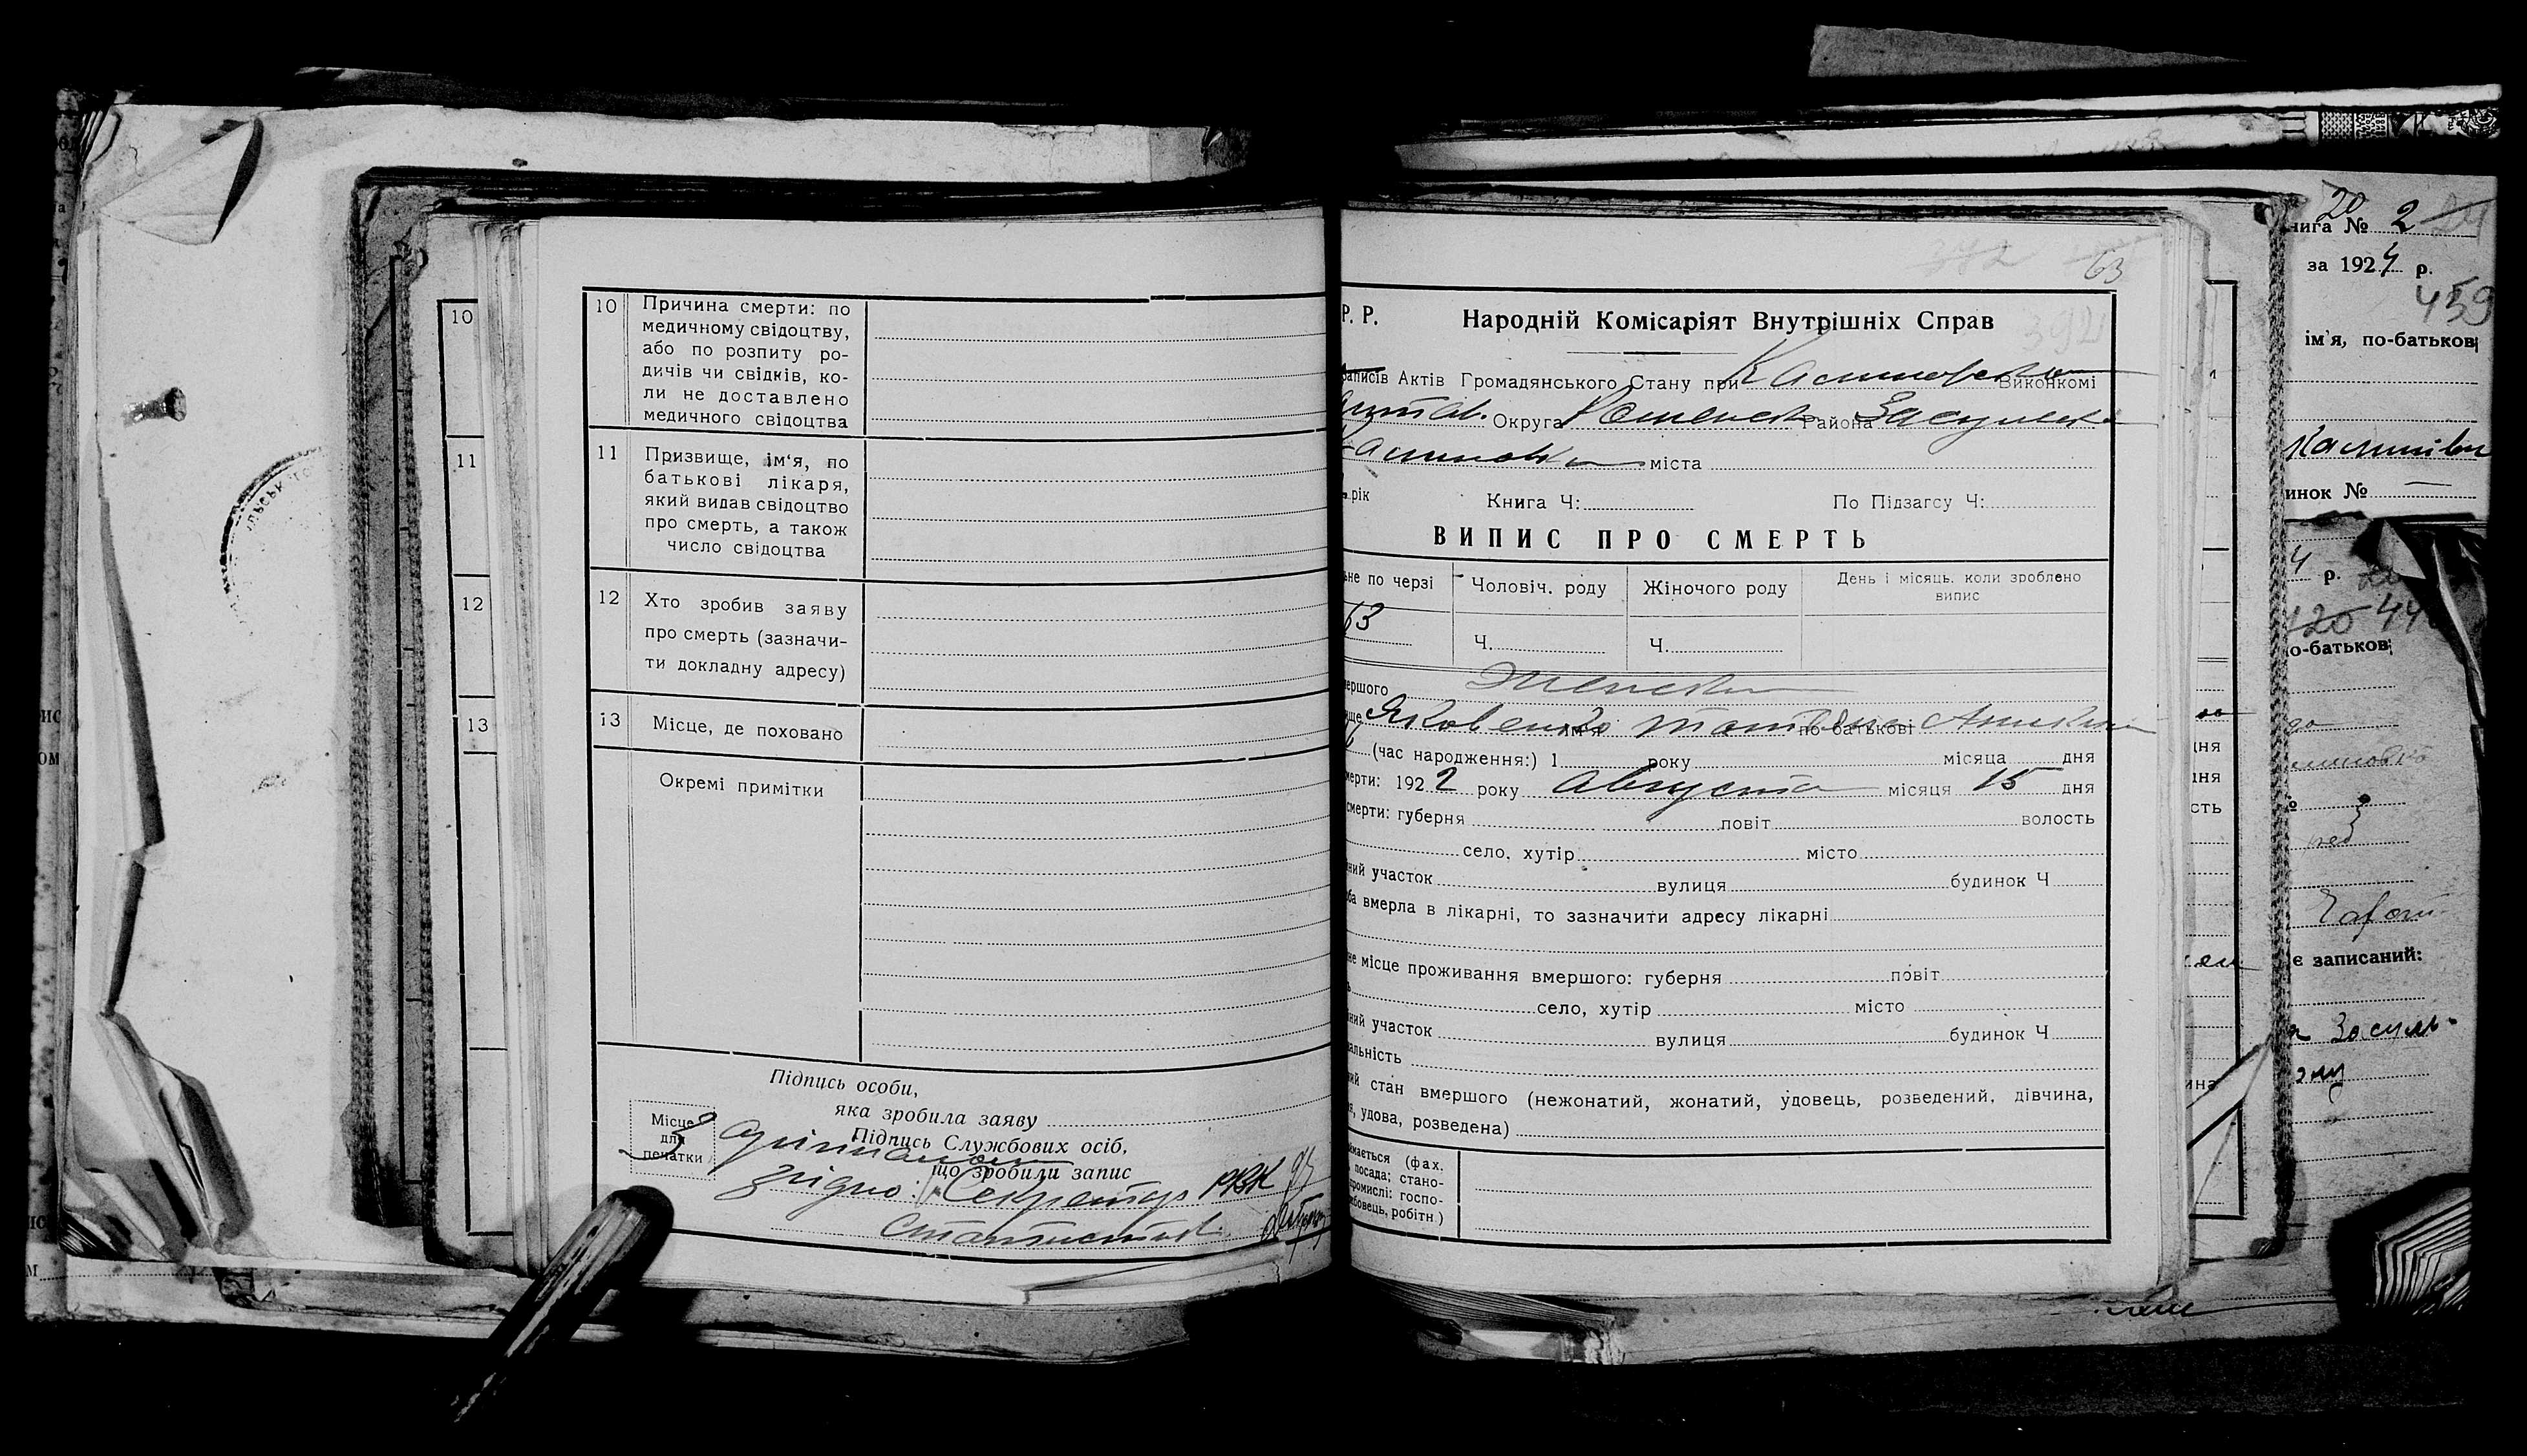 10 Причина смерти: по
медичному свідоцтву,
або по розпиту ро-
дичів чи свідків, ко-
ли не доставлено
медичного свідоцтва
11 Призвище, ім‘я, по
батькові лікаря,
який видав свідоцтво
про смерть, а також
число свідоцтва
12 Хто зробив заяву
про смерть (зазначи-
ти докладну адресу)
13 Місце, де поховано
Окремі примітки
Підпись особи,
яка зробила заяву
Місце
для
печатки
Підпись Службових осіб,
що зробили запис
З
згідно: Секретар РВК
10
11
12
13
63
Р. Р. Народній Комісаріят Внутрішніх Справ
записів Актів Громадянського Стану при Виконкомі
Округа Роменск Района Засульск
міста
рік Книга Ч: По Підзагсу Ч:
ВИПИС ПРО СМЕРТЬ
ьне по черзі Чоловіч. роду Жіночого роду День і місяць, коли зроблено
випис
63 Ч. Ч.
мершого Женск
ище Яковенко імя Татьяна по батькові
(час народження:) 1 року місяца дня
мерти: 1922 року Августа місяця 15 дня
смерти: губерня повіт волость
село, хутір місто
ний участок вулиця будинок Ч
ба вмерла в лікарні, то зазначити адресу лікарні
не місце проживання вмершого: губерня повіт
село, хутір місто
ний участок вулиця будинок Ч
альність
ий стан вмершого (нежонатий, жонатий, удовець, розведений, дівчина,
удова, розведена)
мається (фах.
посада; стано-
ромислі: госпо-
бовець, робітн.)
нига № 20 2
за 1924 р.
459
ім’я, по-батькові
инок № —
4 р.
120
о-батькові
є записаний:
Засуль
дня
дня
сть
ина